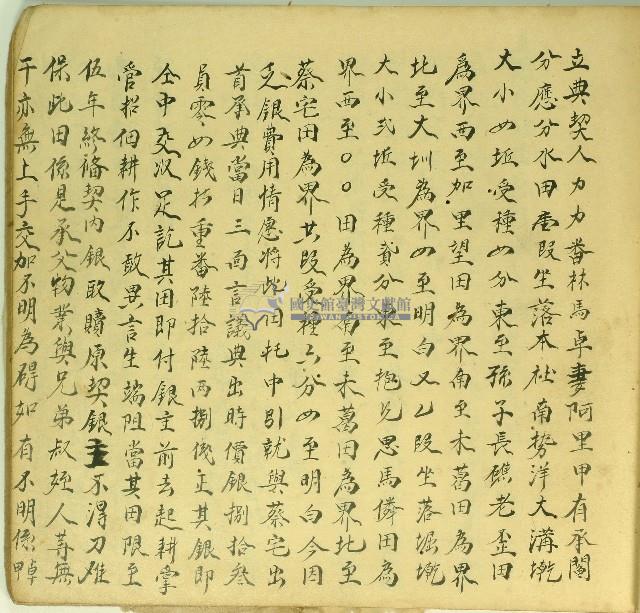 立典契人力力番林馬卓妻阿里甲有承鬮
分應分水田壹段坐落本社南勢洋大溝墘
大小四坵受種四分東至孫子長礁老歪田
為界西至加里望田為界南至未葛田為界
北至大圳為界四至明白又乙段坐落堀墘
大小弍坵受種貳分東至抱兄思馬憐田為
界西至○○田為界南至未葛田為界北至
蔡宅田為界共段受種六分四至明白今因
乏銀費用情愿將此田托中引就與蔡宅出
首承典當日三面言議典出時價銀捌拾叁
員零四錢折重番陸拾陸兩捌伐正其銀即
仝中交收足訖其田即付銀主前去起耕掌
管招佃耕作不敢異言生端阻當其田限至
伍年終備契內銀取贖原契銀主不得刁难
保此田係是承父物業與兄弟叔姪人等無
干亦無上手交加不明為碍如有不明係卓
國史館臺灣文獻館
TAIWAN HISTORICA